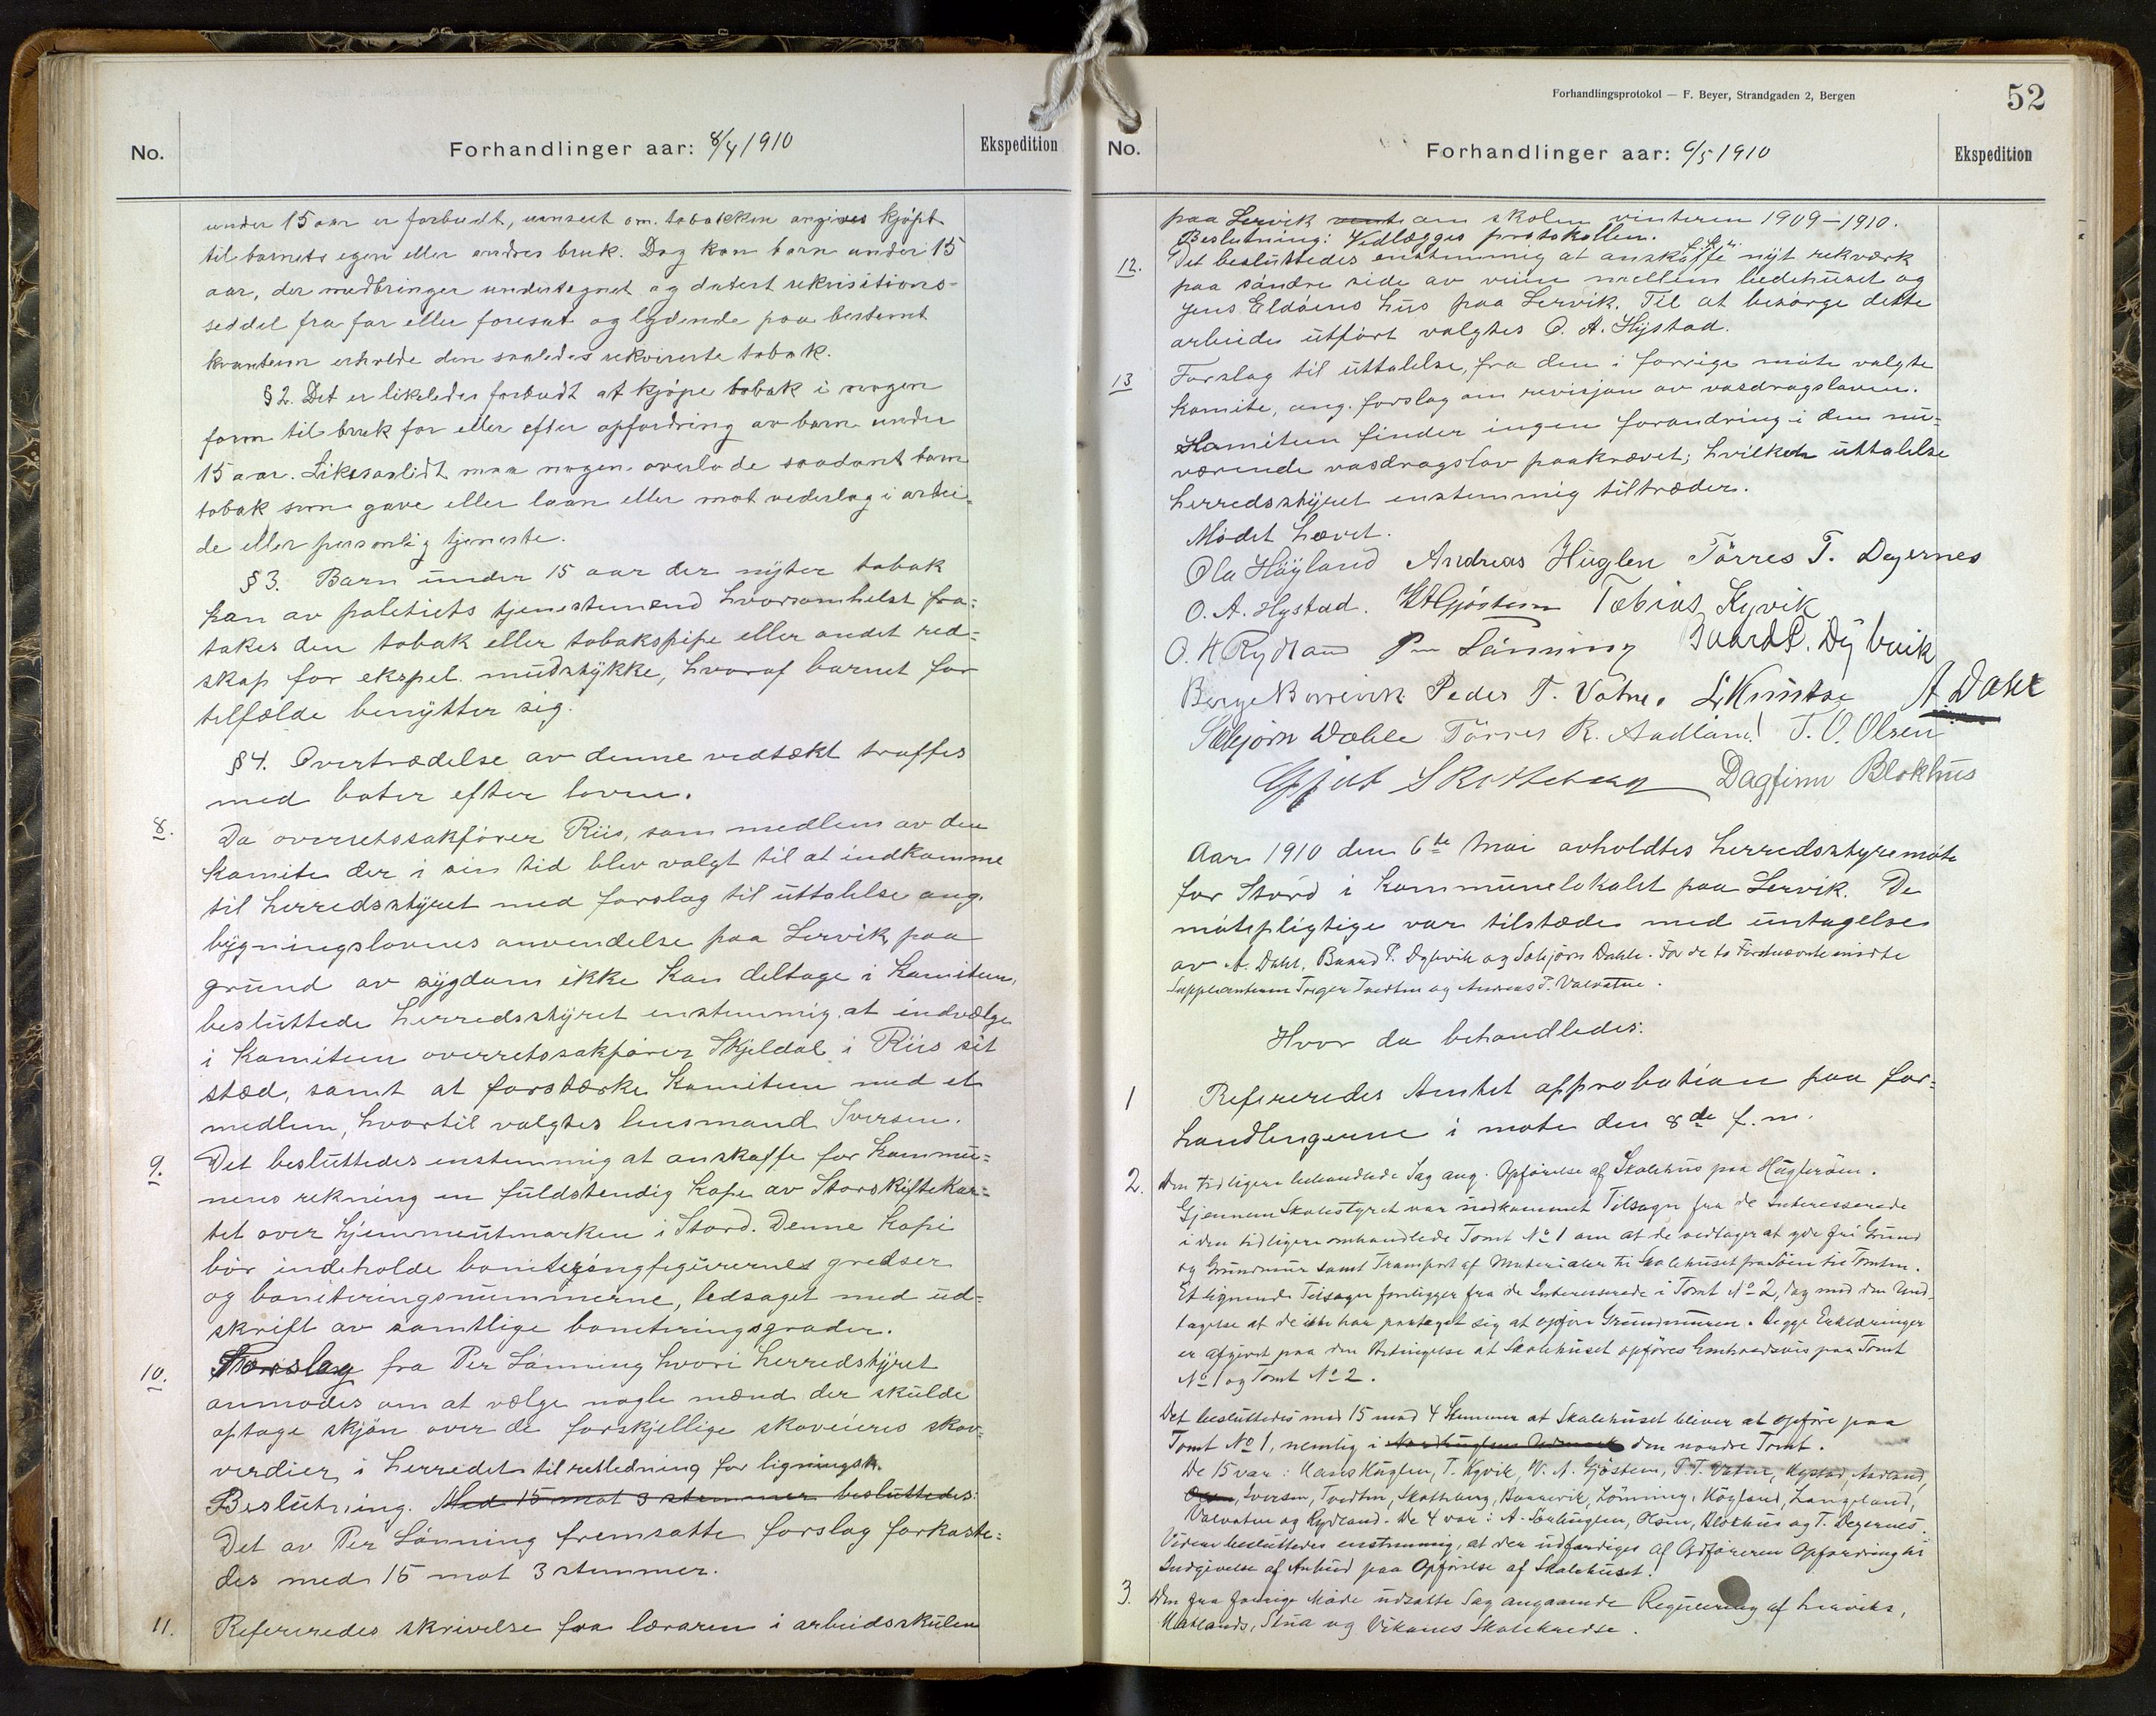 No.
Forhandlinger aar: 8/4 1910
Ekspedition
under 15 aar er forbudt, uanseet om tobakken angives kjøpt
til barnets egen eller andres bruk. Dog kan barn under 15
aar, der medbringer undertegnet og datert rekvisitions-
seddel fra far eller foresat og lydende paa bestemt
kvantum erholde den saaledes rekvirerte tobak.
§ 2. Det er likeledes forbudt at kjøpe tobak i nogen
form til bruk for eller efter opfordring av barn under
15 aar. Likesaalidt maa nogen overlade saadant barn
tobak som gave eller laan eller mot vederlag i arbei-
de eller personlig tjeneste.
§ 3. Barn under 15 aar der nyter tobak
kan av politiets tjenestemænd hvorsomhelst fra-
takes den tobak eller tobakspipe eller andet red-
skap for ekspel. mundstykke, hvoraf barnet for
tilfælde benytter sig.
§ 4. Overtrædelse av denne vedtækt straffes
med bøter efter loven.
8. Da overretssakfører Riis, som medlem av den
komite der i sin tid blev valgt til at indkomme
til herredsstyret med forslag til uttalelse ang.
bygningslovens anvendelse paa Lervik, paa
grund av sygdom ikke kan deltage i komiteen,
besluttede herredsstyret enstemmig at indvælge
i komiteen overretssakfører Skjeldal i Riis sit
sted, samt at forstærke komiteen med et
medlem, hvortil valgtes lensmand Iversen.
9. Det besluttedes enstemmig at anskaffe for kommu-
nens rekning en fuldstendig kopi av Storskiftekar-
tet over hjemmeutmarken i Stord. Denne kopi
bør indeholde boniteringfigurernes grendser
og boniteringsnummerne, ledsaget med ud-
skrift av samtlige boniteringsgrader.
10. Forslag fra Per Lønning hvori herredsstyret
anmodes om at vælge nogle mænd der skulde
optage skjøn over de forskjellige skoveieres skov-
verdier i herredet til retledning for ligningsk.
Beslutning. Med 15 mot 3 stemmer besluttedes:
Det av Per Lønning fremsatte forslag forkaste-
des med 15 mot 3 stemmer.
11. Refereredes skrivelse fra læraren i arbeidsskulen
Forhandlingsprotokol — F. Beyer, Strandgaden 2, Bergen
52
No.
Forhandlinger aar: 6/5 1910
Ekspedition
paa Lervik om skolen vinteren 1909–1910.
Beslutning: Vedlægges protokollen.
12. Det besluttedes enstemmig at anskaffe nyt rekværk
paa søndre side av veien mellem bedehuset og
Jens Eldøens hus paa Lervik. Til at besørge dette
arbeide utført valgtes O. A. Hystad.
13 Forslag til uttalelse, fra den i forrige møte valgte
komite, ang. forslag om revisjon av vasdragsloven.
Komiteen finder ingen forandring i den nu-
værende vasdragslov paakrævet; hvilken uttalelse
herredsstyret enstemmig tiltræder.
Mødet hævet.
Ola Høyland Andreas Huglen Tørres T. Degernes
O. A. Hystad. Tobias Kyvik
O. H Rydland Per Lønning Baard P. Dybvik
Børge Borrevik Peder T. Vatne. A. Dahl
Sæbjørn Dahle Tørres R. Aadland T. O. Olsen
Skotteberg Dagfinn Blokhus
Aar 1910 den 6te Mai avholdtes herredsstyremøte
for Stord i kommunelokalet paa Lervik. De
møtepligtige var tilstæde med untagelse
av A. Dahl, Baard P. Dybvik og Sæbjørn Dahle. For de to Førstnævnte mødte
Suppleanterne Tveiten og Andreas T. Valvatne.
Hvor da behandledes:
1 Refereredes Amtets approbation paa for-
handlingerne i møte den 8de f. m.
2. Den tidligere behandlede Sag ang. Opførelse af Skolehus paa Huglaøen.
Gjennem Skolestyret var indkommet Tilsagn fra de Interesserede
i den tidligere omhandlede Tomt No 1 om at de vedtager at yde fri Grund
og Grundmur samt Transport af Materialer til Skolehuset fra Søen til Tomten.
Et lignende Tilsagn foreligger fra de Interesserede i Tomt No 2, dog med den Und-
tagelse at de ikke har paataget sig at opføre Grundmuren. Begge Erklæringer
er afgivet paa den Betingelse at Skolehuset opføres henholdsvis paa Tomt
No 1 og Tomt No 2.
Det besluttedes med 15 mod 4 Stemmer at Skolehuset bliver at opføre paa
Tomt No 1, nemlig i den nordre Tomt.
De 15 var: Hans Huglen, T. Kyvik, W. A. Gjøstein, P. T. Vatne, Hystad, Aadland,
Iversen, Tveiten, Skotteberg, Borrevik, Lønning, Høyland, Langeland,
Valvatne og Rydland. De 4 var: A. Sørhuglen, Olsen, Blokhus og T. Degernes.
Videre besluttedes enstemmig, at der udfærdiges af Ordføreren Opfordring til
Indgivelse af Anbud paa Opførelse af Skolehuset.
3. Den fra forrige Møde udsatte Sag angaaende Regulering af Lerviks,
Hatlands, Stua og Vikanes Skolekredse.